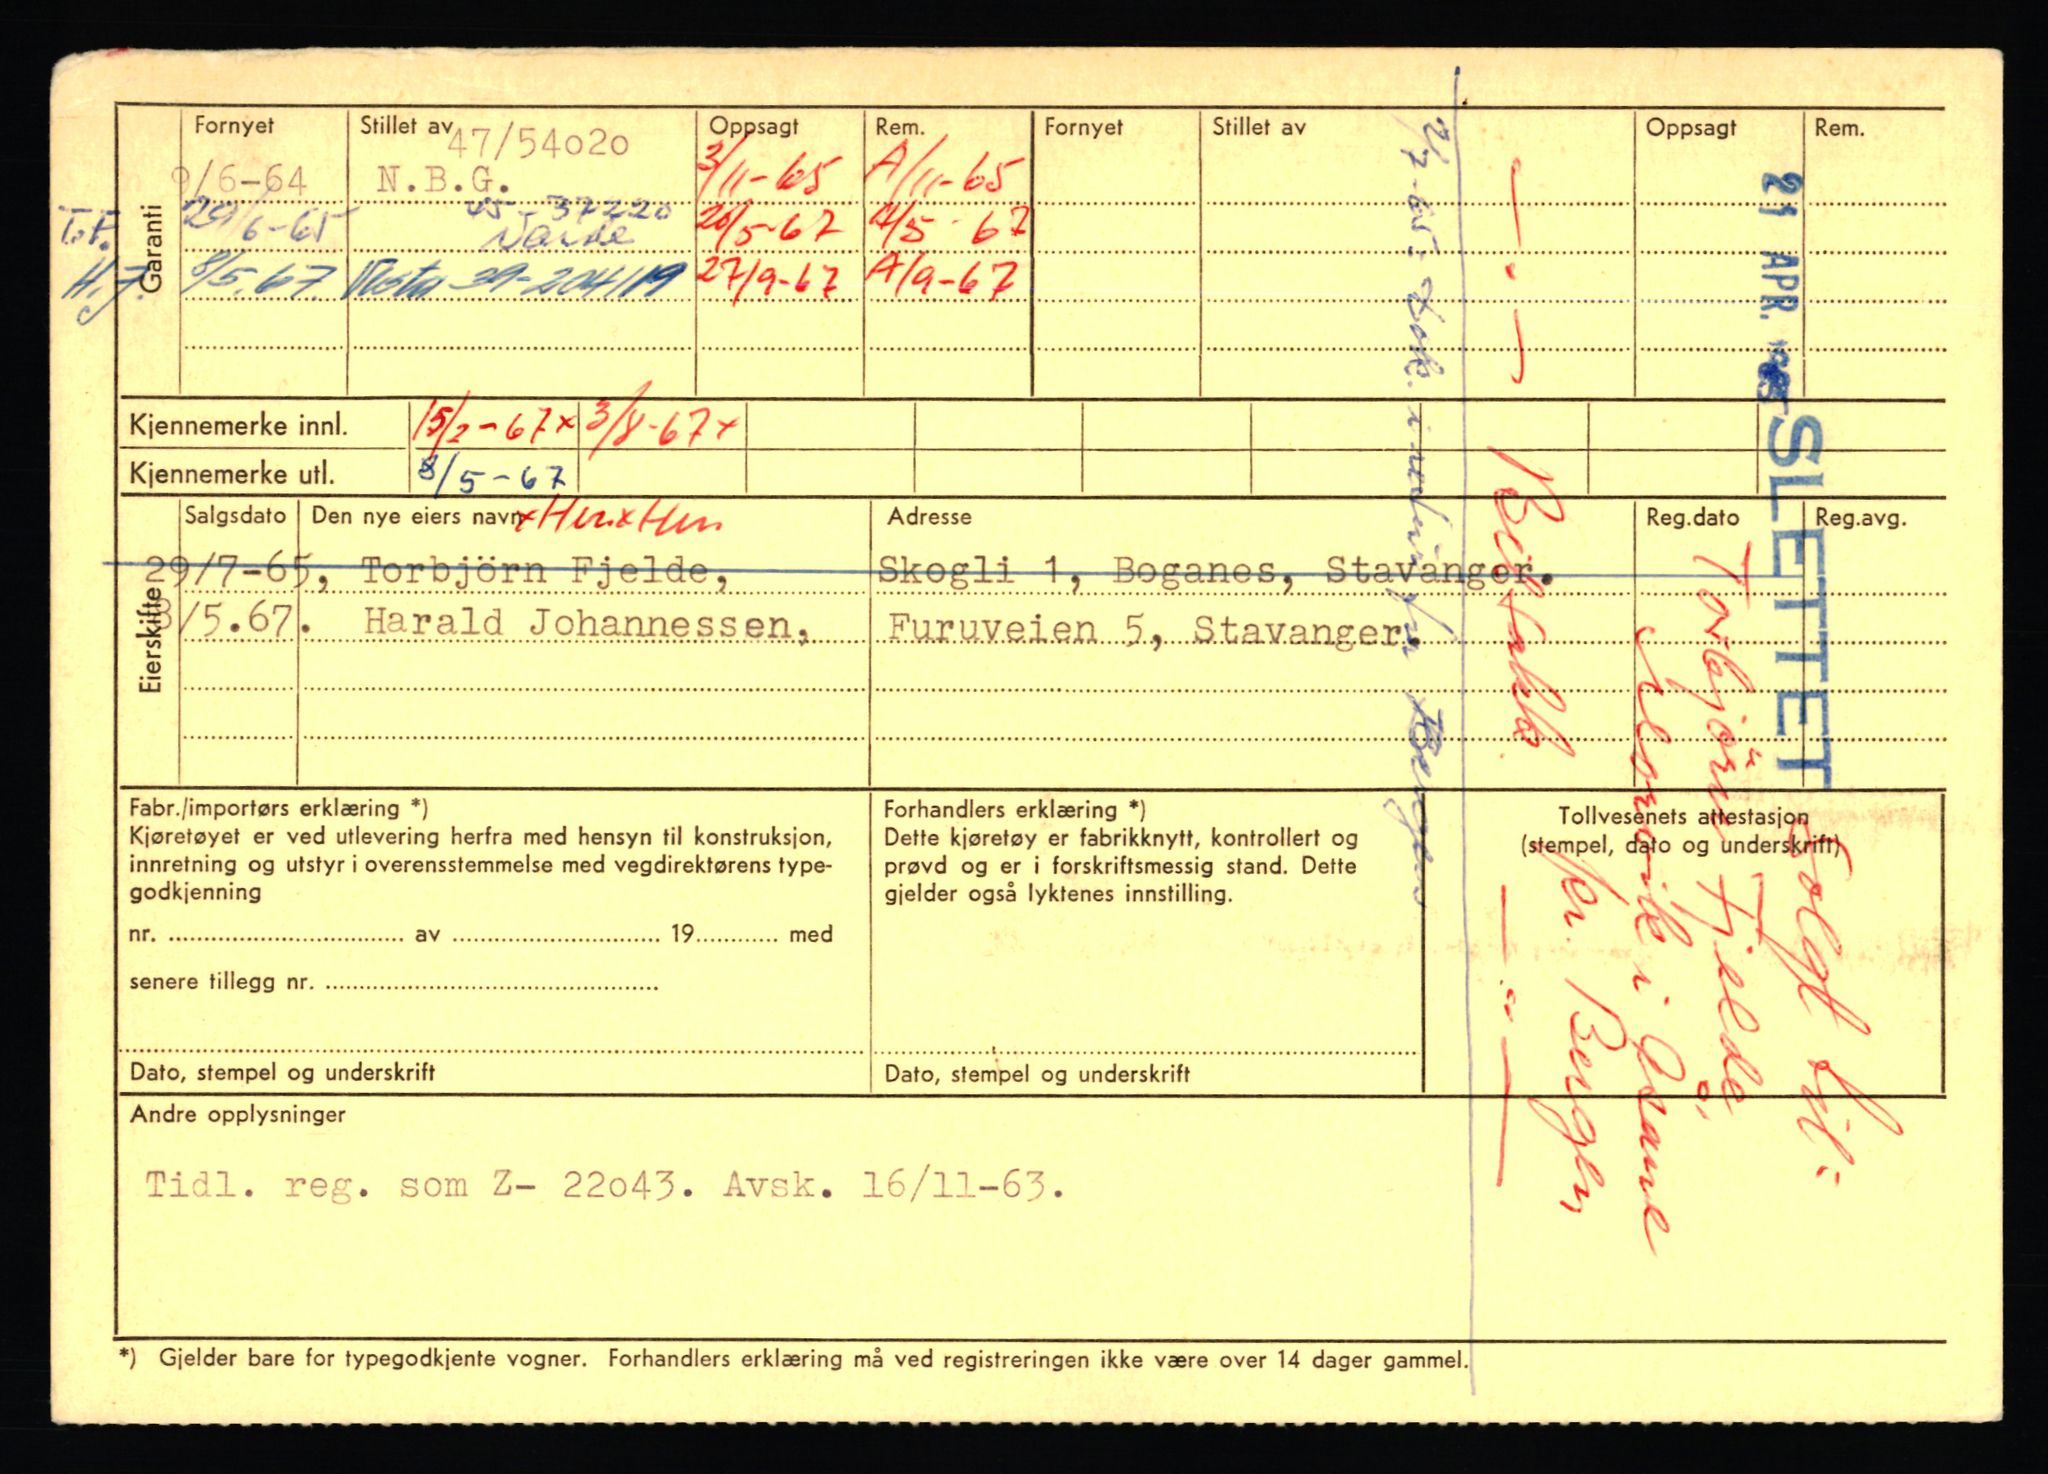 Garanti
Fornyet Stillet av Oppsagt Rem. Fornyet Stillet av Oppsagt Rem.
47/54020
9/6-64 N.B.G. 3/11-65 A/11-65
T.F. 29/6-65 45-37220 26/5-67 A/5-67
Norde
H.J. 8/5.67. Vesta 39-204119 27/9-67 A/9-67
Kjennemerke innl. 15/2-67x 3/8-67x
Kjennemerke utl. 8/5-67
Eierskifte
Salgsdato Den nye eiers navn xHen xHen Adresse Reg.dato Reg.avg.
29/7-65, Torbjörn Fjelde, Skogli 1, Boganes, Stavanger.
8/5.67. Harald Johannessen, Furuveien 5, Stavanger.
Fabr./importørs erklæring *)
Kjøretøyet er ved utlevering herfra med hensyn til konstruksjon,
innretning og utstyr i overensstemmelse med vegdirektørens type-
godkjenning
nr. av 19 med
senere tillegg nr.
Dato, stempel og underskrift
Forhandlers erklæring *)
Dette kjøretøy er fabrikknytt, kontrollert og
prøvd og er i forskriftsmessig stand. Dette
gjelder også lyktenes innstilling.
Dato, stempel og underskrift
Tollvesenets attestasjon
(stempel, dato og underskrift)
Andre opplysninger
Tidl. reg. som Z- 22043. Avsk. 16/11-63.
*) Gjelder bare for typegodkjente vogner. Forhandlers erklæring må ved registreringen ikke være over 14 dager gammel.
21 APR. 1985
SLETTET
Solgt til:
Torbjörn Fjelde,
i
Bergen
i Bergen